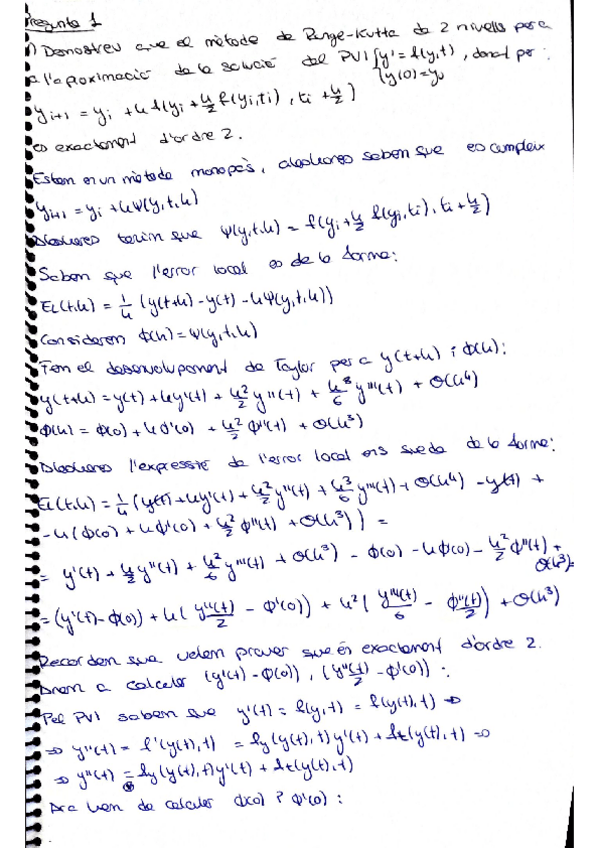 Pregunta 1
1) Demostreu que el mètode de Runge-Kutta de 2 nivells per a
a l'aproximació de la solució del PVI {y' = f(y,t), y(0)=y₀ , donat per:
y_{i+1} = y_i + h f(y_i + h/2 f(y_i,t_i), t_i + h/2)
es exactament d'ordre 2.
Estem en un mètode monopàs, aleshores sabem que es compleix
y_{i+1} = y_i + hΨ(y,t,h)
Aleshores tenim que Ψ(y,t,h) = f(y_i + h/2 f(y_i,t_i), t_i + h/2)
Sabem que l'error local es de la forma:
E_L(t,h) = 1/h (y(t+h) - y(t) - hΨ(y,t,h))
Considerem Φ(h) = Ψ(y,t,h)
Fem el desenvolupament de Taylor per a y(t+h) i Φ(h):
y(t+h) = y(t) + hy'(t) + h²/2 y''(t) + h³/6 y'''(t) + O(h⁴)
Φ(h) = Φ(0) + hΦ'(0) + h²/2 Φ''(t) + O(h³)
Aleshores l'expressió de l'error local ens queda de la forma:
E_L(t,h) = 1/h (y(t) + hy'(t) + h²/2 y''(t) + h³/6 y'''(t) + O(h⁴) - y(t) +
- h(Φ(0) + hΦ'(0) + h²/2 Φ''(t) + O(h³))) =
= y'(t) + h/2 y''(t) + h²/6 y'''(t) + O(h³) - Φ(0) - hΦ(0) - h²/2 Φ''(t) + O(h³) =
= (y'(t) - Φ(0)) + h(y''(t)/2 - Φ'(0)) + h²(y'''(t)/6 - Φ''(t)/2) + O(h³)
Recordem que volem provar que és exactament d'ordre 2.
Anem a calcular (y'(t) - Φ(0)), (y''(t)/2 - Φ'(0)):
Pel PVI sabem que y'(t) = f(y,t) = f(y(t),t) ⇒
⇒ y''(t) = f'(y(t),t) = f_y(y(t),t)y'(t) + f_t(y(t),t) ⇒
⇒ y''(t) = f_y(y(t),t)y'(t) + f_t(y(t),t)
Ara hem de calcular Φ(0) i Φ'(0):